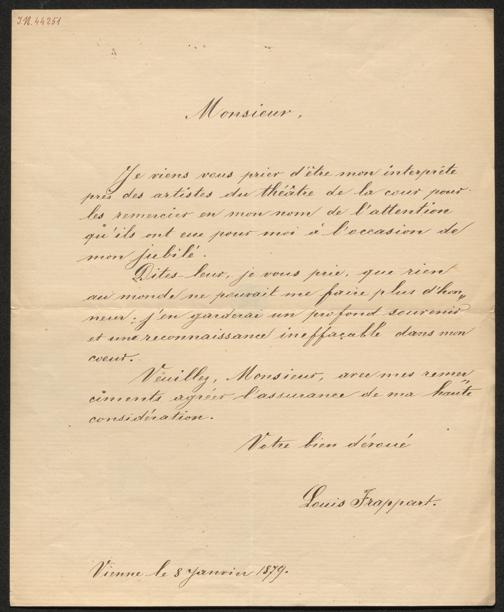 I.N. 44251
Monsieur,
Je viens vous prier d'être mon interprète
près des artistes du théâtre de la cour pour
les remercier en mon nom de l'attention
qu'ils ont eue pour moi à l'occasion de
mon jubilé.
Dites leur, je vous prie, que rien
au monde ne pouvait me faire plus d'hon„
neur; j'en garderai un profond souvenir
et une reconnaissance ineffaçable dans mon
coeur.
Veuillez, Monsieur, avec mes remer„
ciments agréer l'assurance de ma haute
considération.
Votre bien dévoué
Louis Frappart.
Vienne le 8 Janvier 1879.